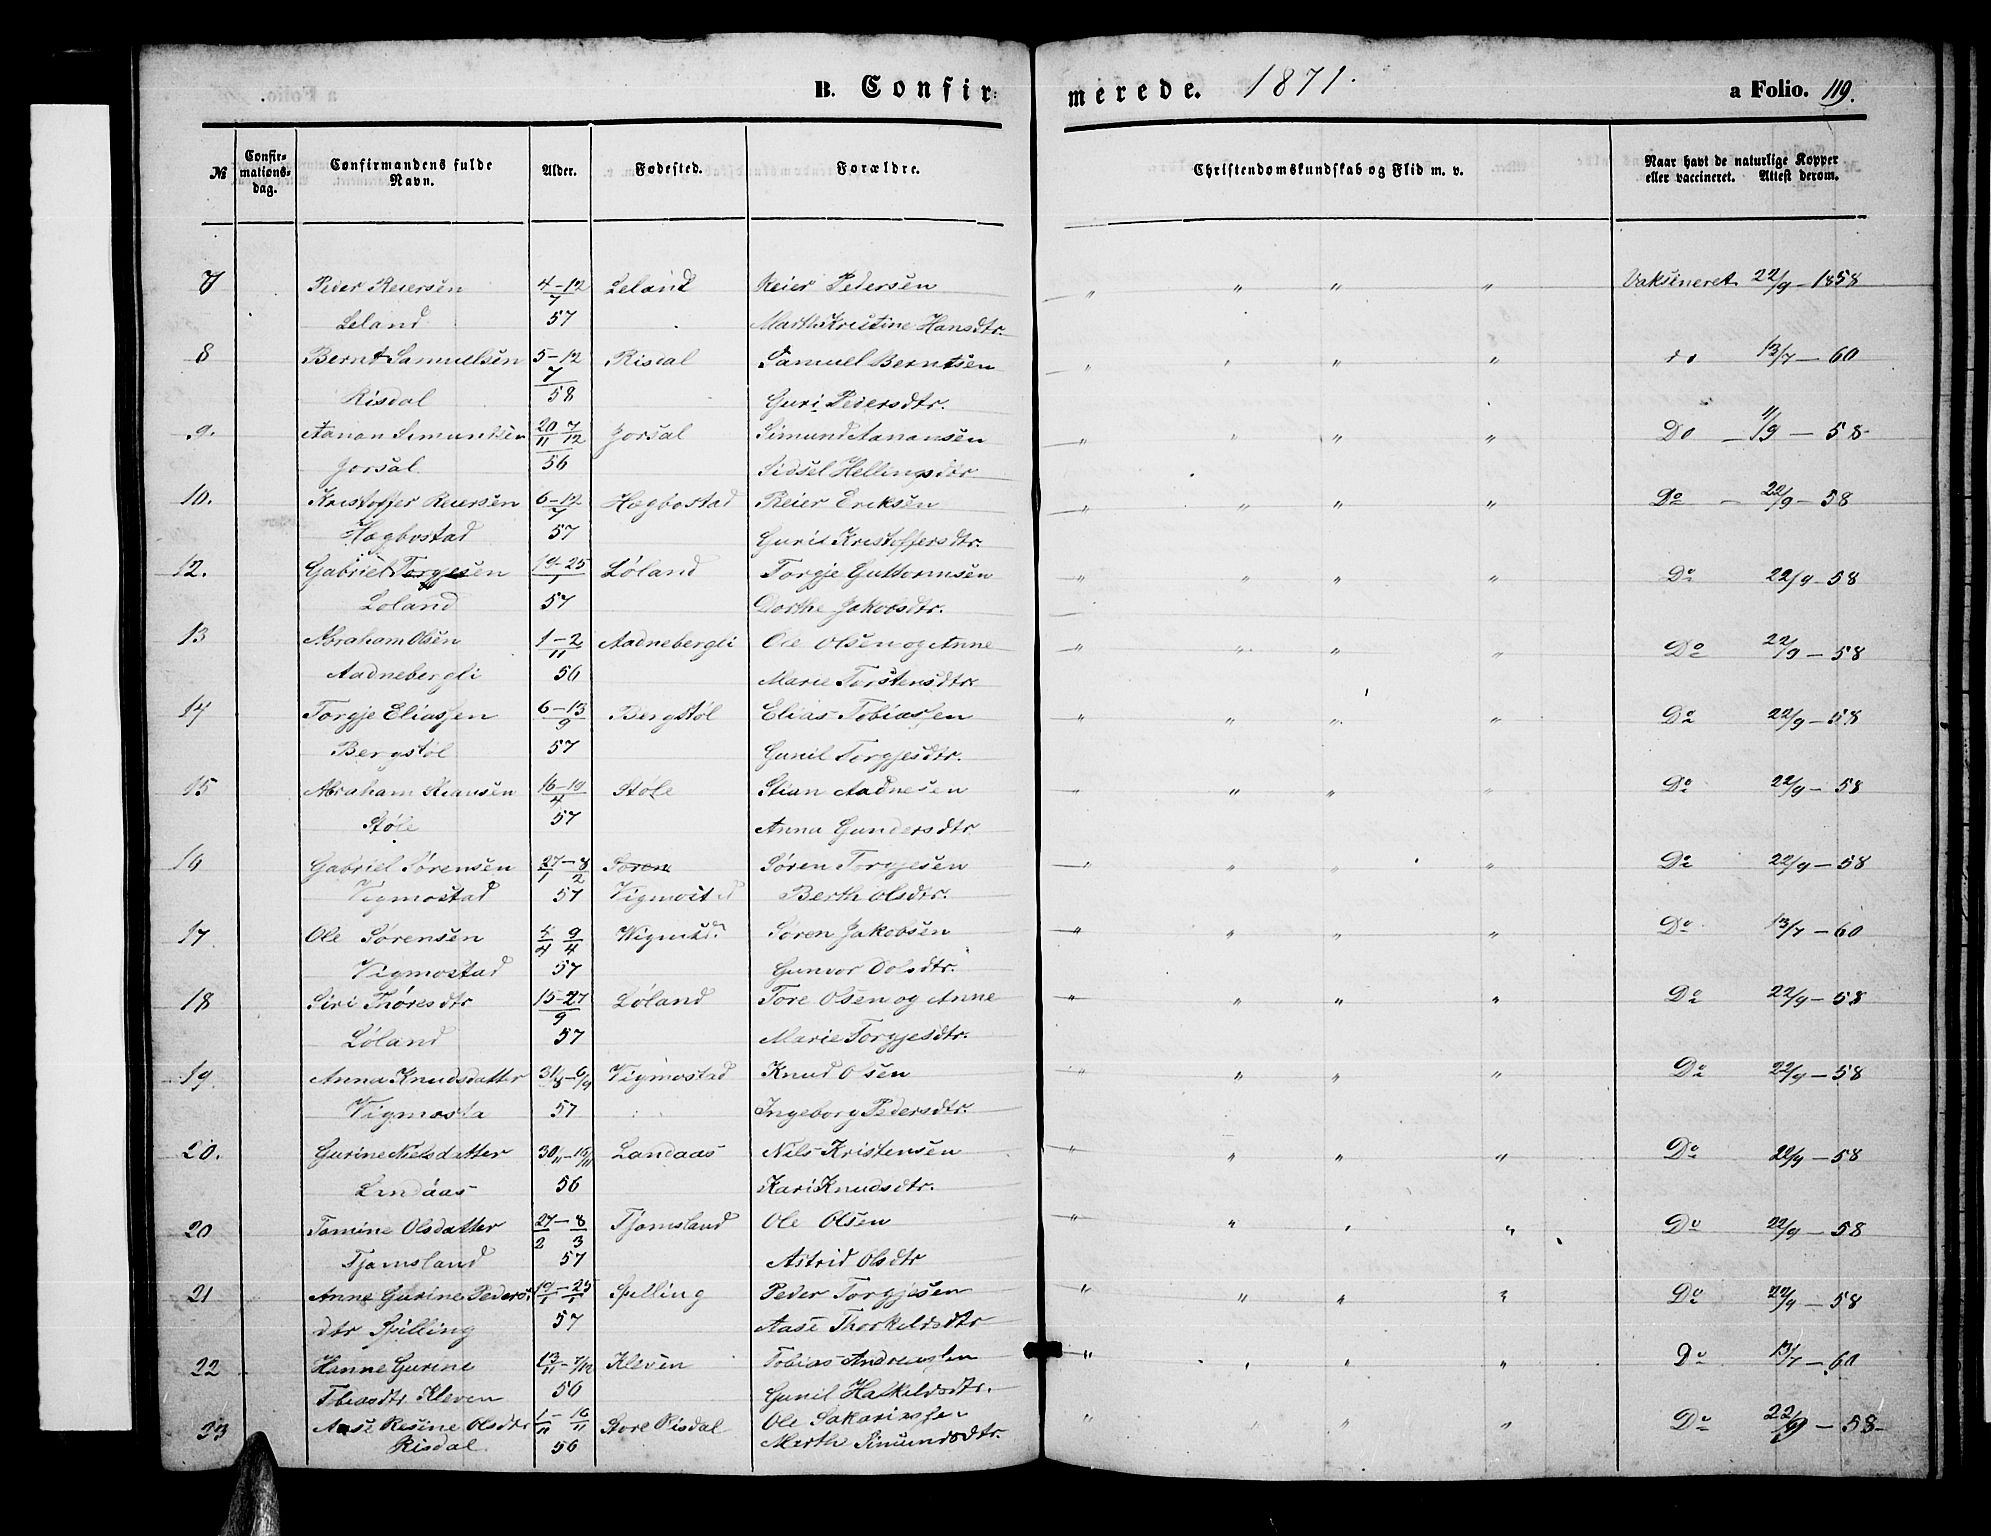 B. Confirmerede. 1871. a Folio. 119.
№ Confirmationsdag. Confirmandens fulde Navn. Alder. Fødested. Forældre. Christendomskundskab og Flid m. v. Naar havt de naturlige Kopper eller vaccineret. Attest derom.
7 Peder Reiersen 4-12/7 Leland Reier Pedersen " " " " Vaksineret 22/9 - 1858
Leland 57 Marth Kristine Hansdtr.
8 Bernt Samuelsen 5-12 Risdal Samuel Berntsen " " " " do 13/7 - 60
Risdal 7/58 Guri Pedersdtr.
9. Aanan Simundsen 20/11 7/12 Jorsal Simund Aanansen " " " " Do - 11/9 - 58-
Jorsal. 56 Sidsel Hellingsdtr
10. Kristoffer Reiersen 6-12/7 Hægbostad Reier Eriksen " " " " Do - 22/9 - 58
Hægbostad 57 Gurie Kristoffersdtr.
12. Gabriel Torgjesen 19-25/1 Løland Torgje Guttormsen " " " " Do 22/9 - 58
Løland 57 Dorthe Jakobsdtr.
13 Abraham Olsen 1-2/11 Aadnebergli Ole Olsen og Anne " " " " Do 22/9 - 58
Aadnebergli 56 Marie Torstensdtr.
14 Torgje Eliassen 6-13/9 Bergstøl Elias Tobiassen " " " " Do 22/9 - 58
Bergstøl 57 Gunil Torgjesdtr.
15 Abraham Stiansen 16-19/4 Støle Stian Aadnesen " " " " Do 22/9 - 58
Støle 57 Anna Gundersdtr
16 Gabriel Sørensen 27/1 - 8/2 Soren Søren Torgjesen " " " " Do 22/9 - 58
Vigmostad 57 Vigmostad Berth Olsdtr.
17 Ole Sørensen 5/4 9/4 Vigmstd Søren Jakobsen " " " " Do 13/7 - 60
Vigmostad 57 Gunvor Dolsdtr.
18 Siri Thoresdtr 15-27/9 Løland Tore Olsen og Anne " " " " Do 22/9 - 58
Løland 57 Marie Torgjesdtr.
19 Anna Knudsdatter 31/8 - 6/9 Vigmostad Knud Olsen " " " " Do 22/9 - 58
Vigmosta 57 Ingeborg Pedersdtr.
20. Gurine Nielsdatter 30/11 - 15/11 Landaas Nils Kristensen " " " " Do 22/9 - 58
Landaas 56 Kari Knudsdtr.
20 Tomine Olsdatter 27/2 - 8/3 Tjomsland Ole Olsen " " " " Do 22/9 - 58
Tjomsland 57 Astrid Olsdtr
21 Anne Gurine Peders. 19/1 - 25/1 Spilling Peder Torgjesen " " " " Do 22/9 - 58
dtr Spilling 57 Aase Thorkildsdtr
22 Hanne Gurine 13/11 - 7/12 Kleven Tobias Andreassen " " " " Do 13/7 - 60
Tobiasdtr Kleven 56 Gunil Haskildsdtr.
23 Aase Resine Olsdtr 1/11 - 16/11 Store Risdal Ole Sakariassen " " " " Do 22/9 - 58-
Risdal 56 Merth Simundsdtr.